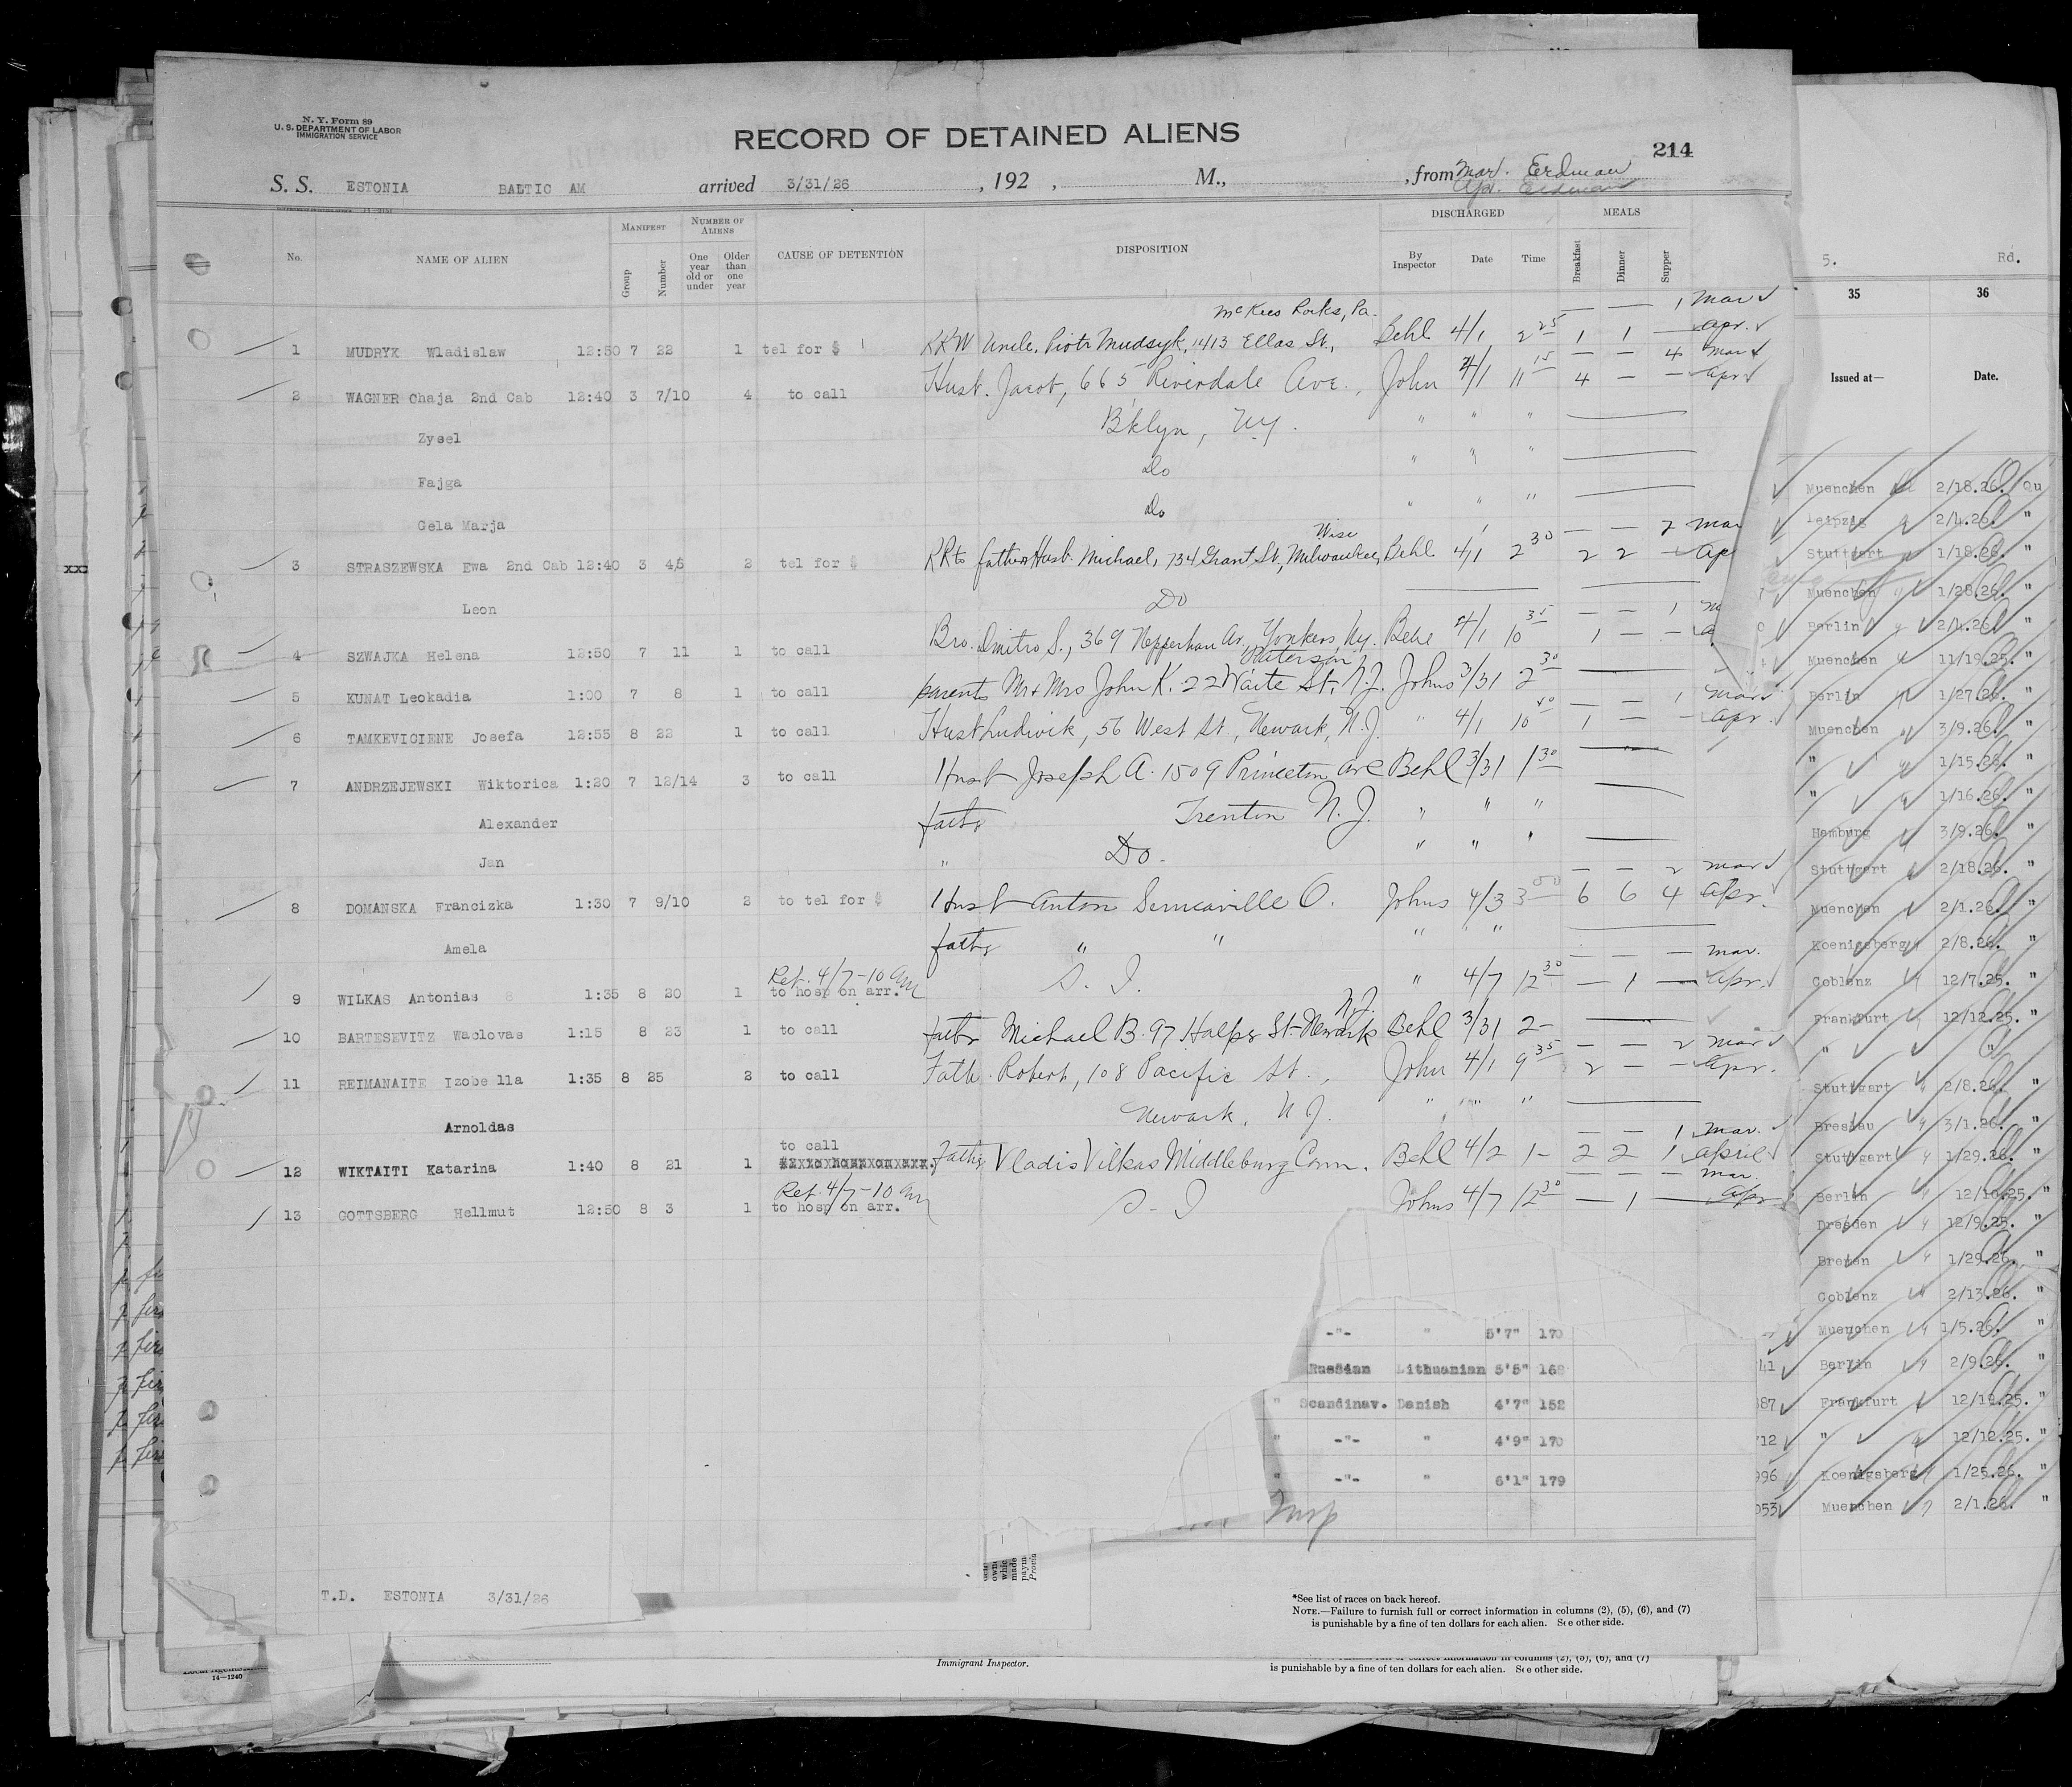 N. Y. Form 89
U. S. DEPARTMENT OF LABOR
IMMIGRATION SERVICE
RECORD OF DETAINED ALIENS
214
S. S. ESTONIA BALTIC AM arrived 3/31/26, 192 , M., , from Mar. Erdman
Apr. Erdman
No. NAME OF ALIEN MANIFEST Group Number NUMBER OF ALIENS One year old or under Older than one year CAUSE OF DETENTION DISPOSITION DISCHARGED By Inspector Date Time MEALS Breakfast Dinner Supper
McKees Rocks, Pa. — — 1 Mar
1 MUDRYK Wladislaw 12:50 7 22 1 tel for $ RRW Uncle, Piotr Mudryk, 1413 Ellas St., Behl 4/1 2 25 1 1 — Apr.
— — 4 Mar
2 WAGNER Chaja 2nd Cab 12:40 3 7/10 4 to call Husb. Jacob, 665 Riverdale Ave., John 4/1 11 15 4 — — Apr
Zysel B'klyn, N.Y. " " "
Fajga Do " " "
Gela Marja Do " " "
Wisc — — 2 Mar
3 STRASZEWSKA Ewa 2nd Cab 12:40 3 4,5 2 tel for $ RR to father Husb. Michael, 734 Grant St., Milwaukee, Behl 4/1 2 30 2 2 — Ap
Leon Do
— — 1
4 SZWAJKA Helena 12:50 7 11 1 to call Bro. Dmitro S., 369 Nepperhan Av., Yonkers, Ny. Behl 4/1 10 35 1 — —
Paterson
5 KUNAT Leokadia 1:00 7 8 1 to call parents Mr & Mrs John K. 22 Waite St, N.J. Johns 3/31 2 30
— — 1 Mar
6 TAMKEVICIENE Josefa 12:55 8 22 1 to call Husb Ludwik, 56 West St., Newark, N.J. " 4/1 10 40 1 — — Apr.
7 ANDRZEJEWSKI Wiktorica 1:20 7 12/14 3 to call Husb Joseph A. 1509 Princeton Ave Behl 3/31 1 30
Alexander father Trenton N.J. " " "
Jan " Do. " " "
— — 2 Mar
8 DOMANSKA Francizka 1:30 7 9/10 2 to tel for $ Husb Anton O. Johns 4/3 3 50 6 6 4 Apr.
Amela father " " " " "
Ret. 4/7-10 AM — — — Mar.
9 WILKAS Antonias 1:35 8 20 1 to hosp on arr. S. I. " 4/7 12 30 — 1 — Apr.
N.J.
10 BARTESEVITZ Waclovas 1:15 8 23 1 to call father Michael B. 97 St- Newark Behl 3/31 2-
— — 2 Mar
11 REIMANAITE Izobella 1:35 8 25 2 to call Fath. Robert, 108 Pacific St., John 4/1 9 35 2 — — Apr.
Arnoldas Newark, N.J. " " "
to call — — 1 Mar.
12 WIKTAITI Katarina 1:40 8 21 1 Father Vladis Vilkas Middleburg Conn. Behl 4/2 1- 2 2 1 April
Ret. 4/7-10 AM — — — Mar.
13 GOTTSBERG Hellmut 12:50 8 3 1 to hosp on arr. S. I Johns 4/7 12 30 — 1 — Apr
T.D. ESTONIA 3/31/26
-"- " 5'7" 170
Russian Lithuanian 5'5" 168
" Scandinav. Danish 4'7" 152
" -"- " 4'9" 170
" -"- " 6'1" 179
Insp
*See list of races on back hereof.
NOTE.—Failure to furnish full or correct information in columns (2), (5), (6), and (7)
is punishable by a fine of ten dollars for each alien. See other side.
Immigrant Inspector.
is punishable by a fine of ten dollars for each alien. See other side.
14—1240
5. Rd.
35 36
Issued at— Date.
Muenchen 2/18.26. Qu
Leipzig 2/4.26. "
Stuttgart 1/18.26. "
Muenchen 1/28.26. "
Berlin 2/4.26. "
Muenchen 11/19.25. "
Berlin 1/27.26. "
Muenchen 3/9.26. "
" 1/15.26. "
" 1/16.26. "
Hamburg 3/9.26. "
Stuttgart 2/18.26. "
Muenchen 2/1.26. "
Koenigsberg 2/8.26. "
Coblenz 12/7.25. "
Frankfurt 12/12.25. "
" " "
Stuttgart 2/8.26. "
Breslau 3/1.26. "
Stuttgart 1/29.26. "
Berlin 12/10.25. "
Dresden 12/9.25. "
Bremen 1/29.26. "
Coblenz 2/13.26. "
Muenchen 1/5.26. "
41 Berlin 2/9.26. "
87 Frankfurt 12/19.25. "
12 " 12/12.25. "
996 Koenigsberg 1/25.26. "
053 Muenchen 2/1.26. "